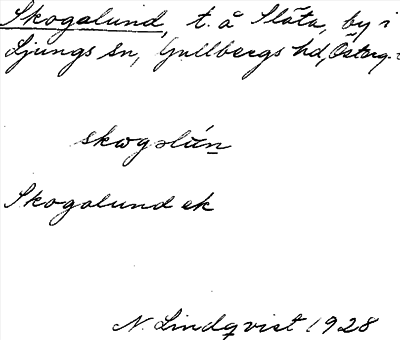 Skogalund, t. å Slåta, by i
Ljungs sn, Gullbergs hd, Österg.
skogalún
Skogalund ek
N. Lindqvist 1928